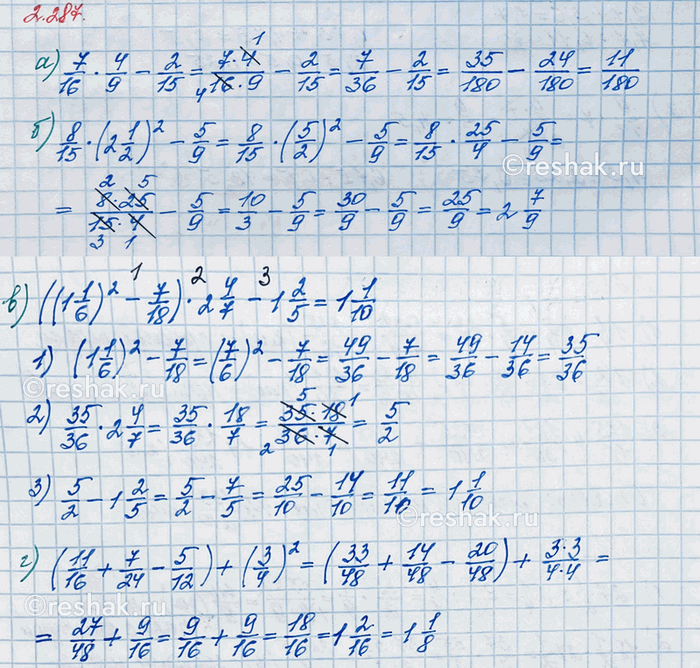 2.287.
а) 7/16 · 4/9 − 2/15 = (7·4)/(16·9) − 2/15 = 7/36 − 2/15 = 35/180 − 24/180 = 11/180
б) 8/15 · (2 1/2)² − 5/9 = 8/15 · (5/2)² − 5/9 = 8/15 · 25/4 − 5/9 =
= (8·25)/(15·4) − 5/9 = 10/3 − 5/9 = 30/9 − 5/9 = 25/9 = 2 7/9
©reshak.ru
в) ((1 1/6)² − 7/18) · 2 4/7 − 1 2/5 = 1 1/10
1) (1 1/6)² − 7/18 = (7/6)² − 7/18 = 49/36 − 7/18 = 49/36 − 14/36 = 35/36
©reshak.ru
2) 35/36 · 2 4/7 = 35/36 · 18/7 = (35·18)/(36·7) = 5/2
3) 5/2 − 1 2/5 = 5/2 − 7/5 = 25/10 − 14/10 = 11/10 = 1 1/10
©reshak.ru
г) (11/16 + 7/24 − 5/12) + (3/4)² = (33/48 + 14/48 − 20/48) + (3·3)/(4·4) =
= 27/48 + 9/16 = 9/16 + 9/16 = 18/16 = 1 2/16 = 1 1/8
©reshak.ru